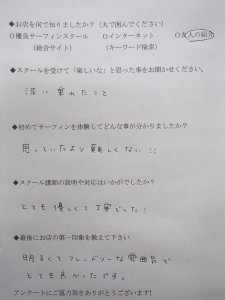 ◆お店を何で知りましたか?(丸で囲んでください)
O優良サーフィンスクール Oインターネット O友人の紹介
(総合サイト) (キーワード検索)
◆スクールを受けて「楽しいな」と思った事をお聞かせください。
波に乗れたこと
◆初めてサーフィンを体験してどんな事が分かりましたか?
思っていたより難しくない!!
◆スクール講師の説明や対応はいかがでしたか?
とても優しくて丁寧でした!
◆最後にお店の第一印象を教えて下さい
明るくてフレンドリーな雰囲気で
とても良かったです。
アンケートにご協力頂きありがとうございます!